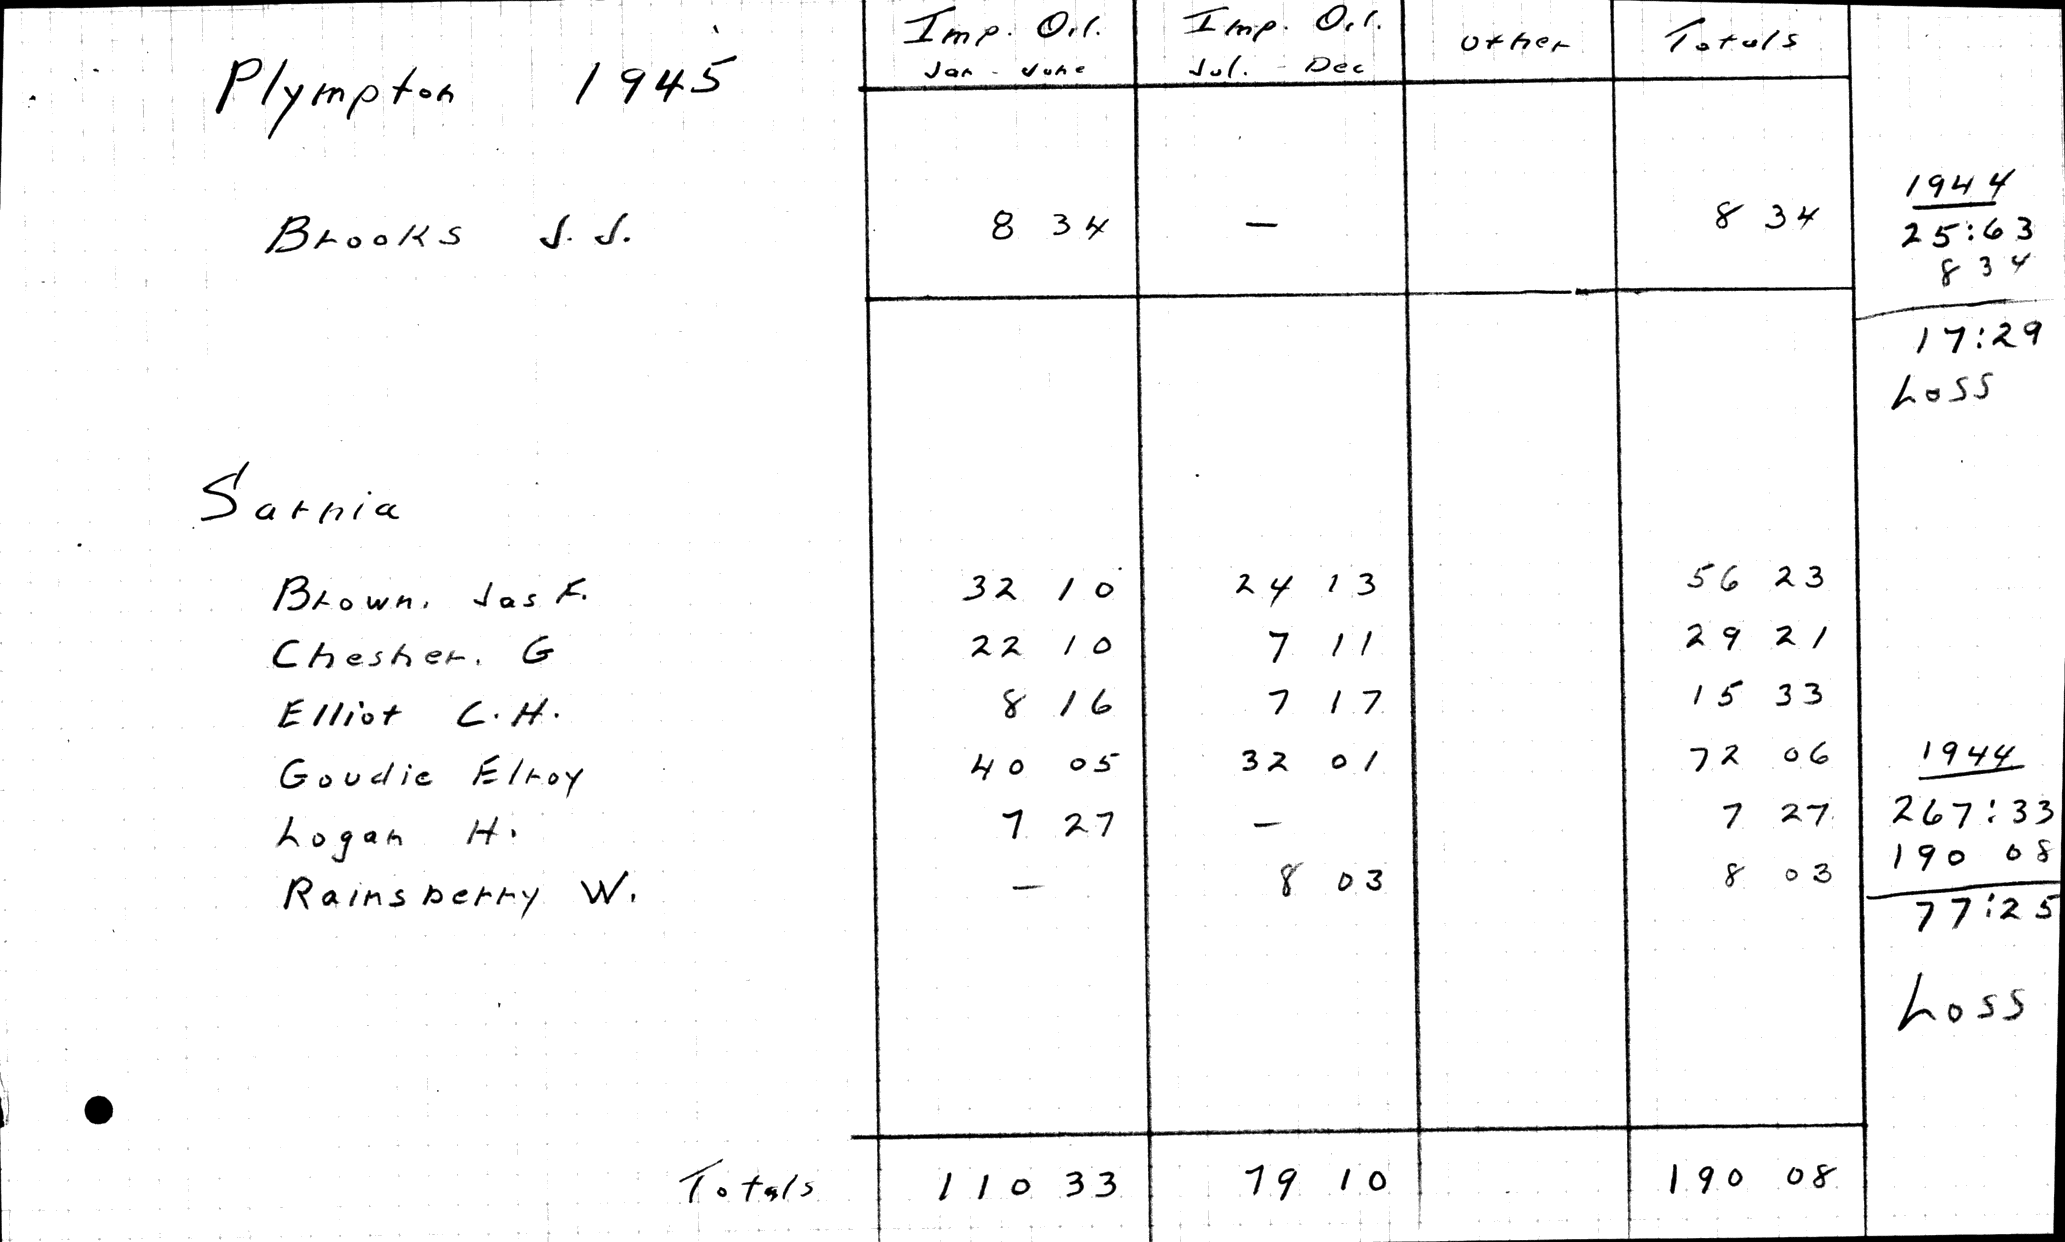 Plympton 1945 Imp. Oil. Jan - June Imp. Oil. Jul. - Dec Other Totals
Brooks J. J. 8 34 — 8 34
1944
25:63
8 34
17:29
Loss
Sarnia
Brown. Jas F. 32 10 24 13 56 23
Chesher. G 22 10 7 11 29 21
Elliot C. H. 8 16 7 17 15 33
Goudie Elroy 40 05 32 01 72 06
Logan H. 7 27 — 7 27
Rainsberry W. — 8 03 8 03
1944
267:33
190 08
77:25
Loss
Totals 110 33 79 10 190 08